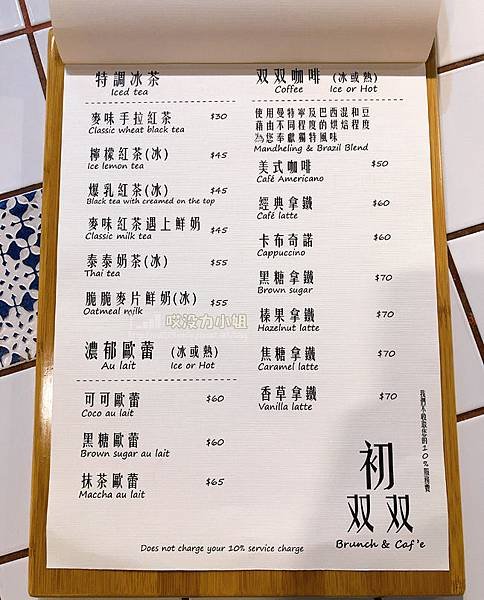 特調冰茶
Iced tea
麥味手拉紅茶 $30
Classic wheat black tea
檸檬紅茶(冰) $45
Ice lemon tea
爆乳紅茶(冰) $45
Black tea with creamed on the top
麥味紅茶遇上鮮奶 $45
Classic milk tea
泰泰奶茶(冰) $55
Thai tea
脆脆麥片鮮奶(冰) $55
Oatmeal milk
濃郁歐蕾 (冰或熱)
Au lait Ice or Hot
可可歐蕾 $60
Coco au lait
黑糖歐蕾 $60
Brown sugar au lait
抹茶歐蕾 $65
Maccha au lait
双双咖啡 (冰或熱)
Coffee Ice or Hot
使用曼特寧及巴西混和豆
藉由不同程度的烘焙程度
為您奉獻獨特風味
Mandheling & Brazil Blend
美式咖啡 $50
Café Americano
經典拿鐵 $60
Café latte
卡布奇諾 $60
Cappuccino
黑糖拿鐵 $70
Brown sugar
榛果拿鐵 $70
Hazelnut latte
焦糖拿鐵 $70
Caramel latte
香草拿鐵 $70
Vanilla latte
我們不收取您的10%服務費
初
双双
Brunch & Caf'e
Does not charge your 10% service charge
哎沒力小姐